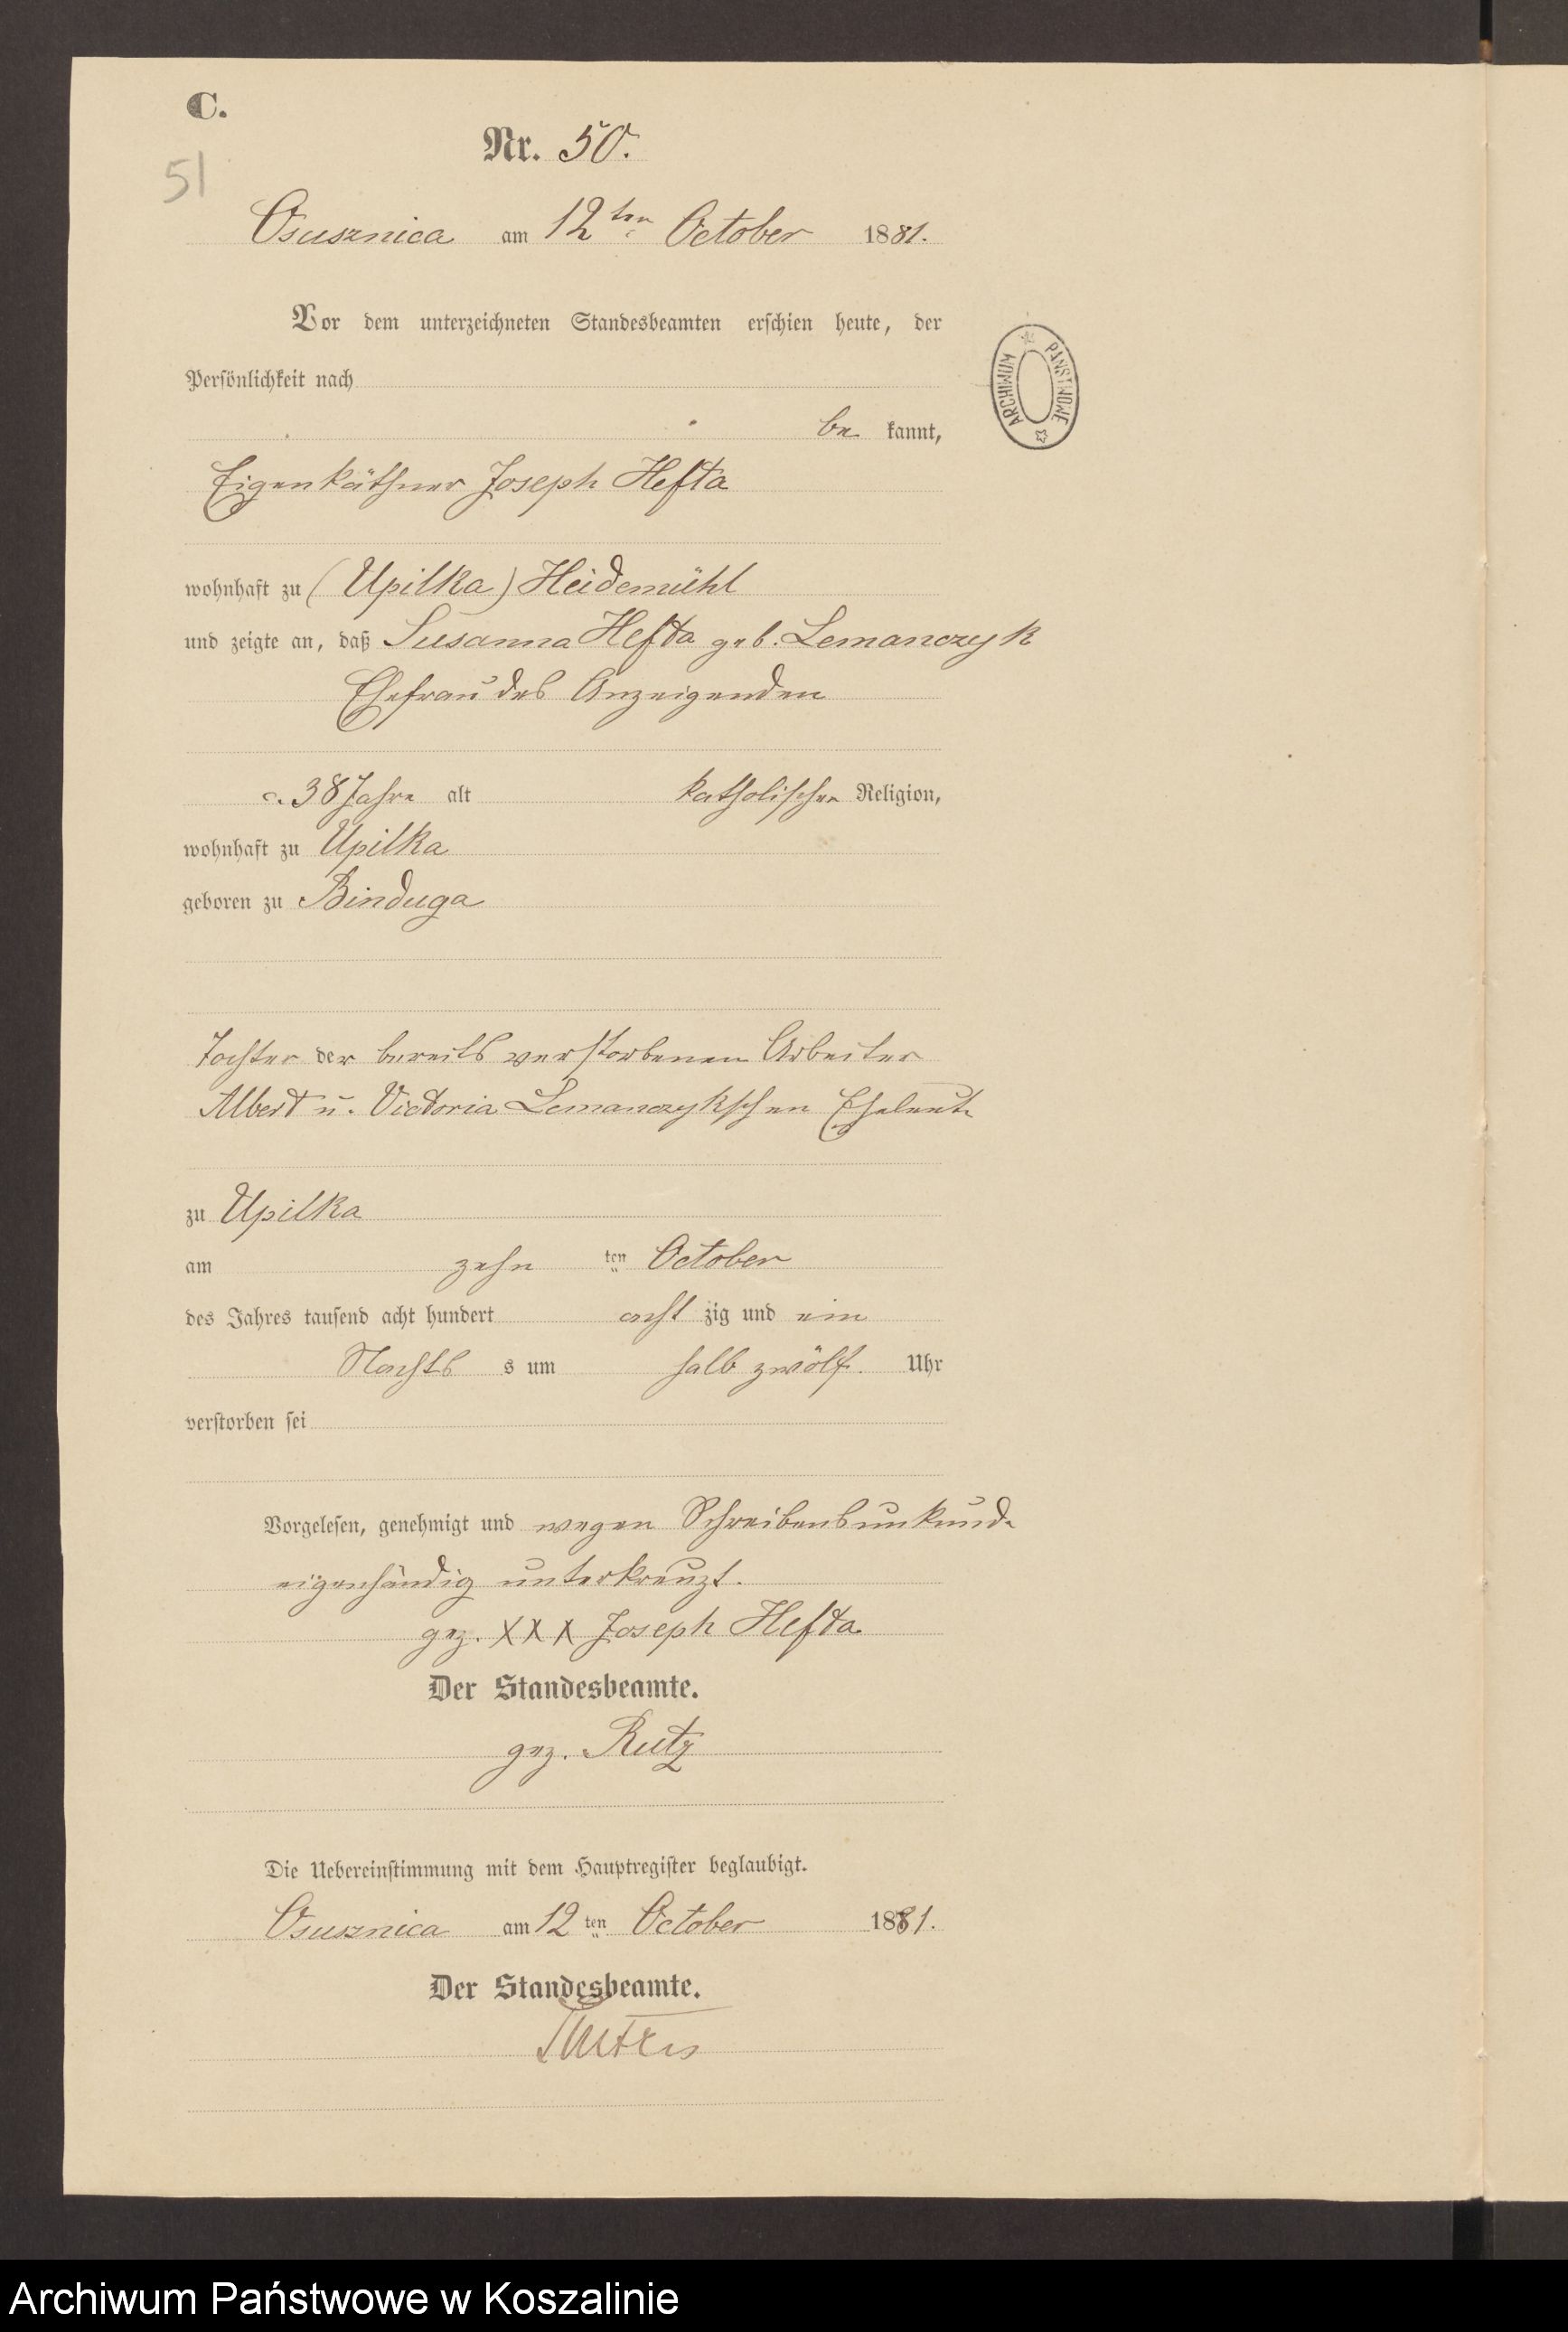 C.
Nr. 50.
51
Osusznica am 12ten October 1881.
Vor dem unterzeichneten Standesbeamten erschien heute, der
Persönlichkeit nach
be kannt,
Eigenkäthner Joseph Hefta
wohnhaft zu (Upilka) Heidemühl
und zeigte an, daß Susanna Hefta geb. Lemanczyk
Ehefrau des Anzeigenden
c. 38 Jahre alt katholischer Religion,
wohnhaft zu Upilka
geboren zu Binduga
Tochter der bereits verstorbenen Arbeiter
Albert u. Victoria Lemanczykschen Eheleute
zu Upilka
am zehn ten October
des Jahres tausend acht hundert acht zig und ein
Nachts s um halb zwölf. Uhr
verstorben sei
Vorgelesen, genehmigt und wegen Schreibensunkunde
eigenhändig unterkreuzt.
gez. XXX Joseph Hefta
Der Standesbeamte.
gez. Rutz
Die Uebereinstimmung mit dem Hauptregister beglaubigt.
Osusznica am 12 ten October 1881.
Der Standesbeamte.
ARCHIWUM PAŃSTWOWE
Archiwum Państwowe w Koszalinie